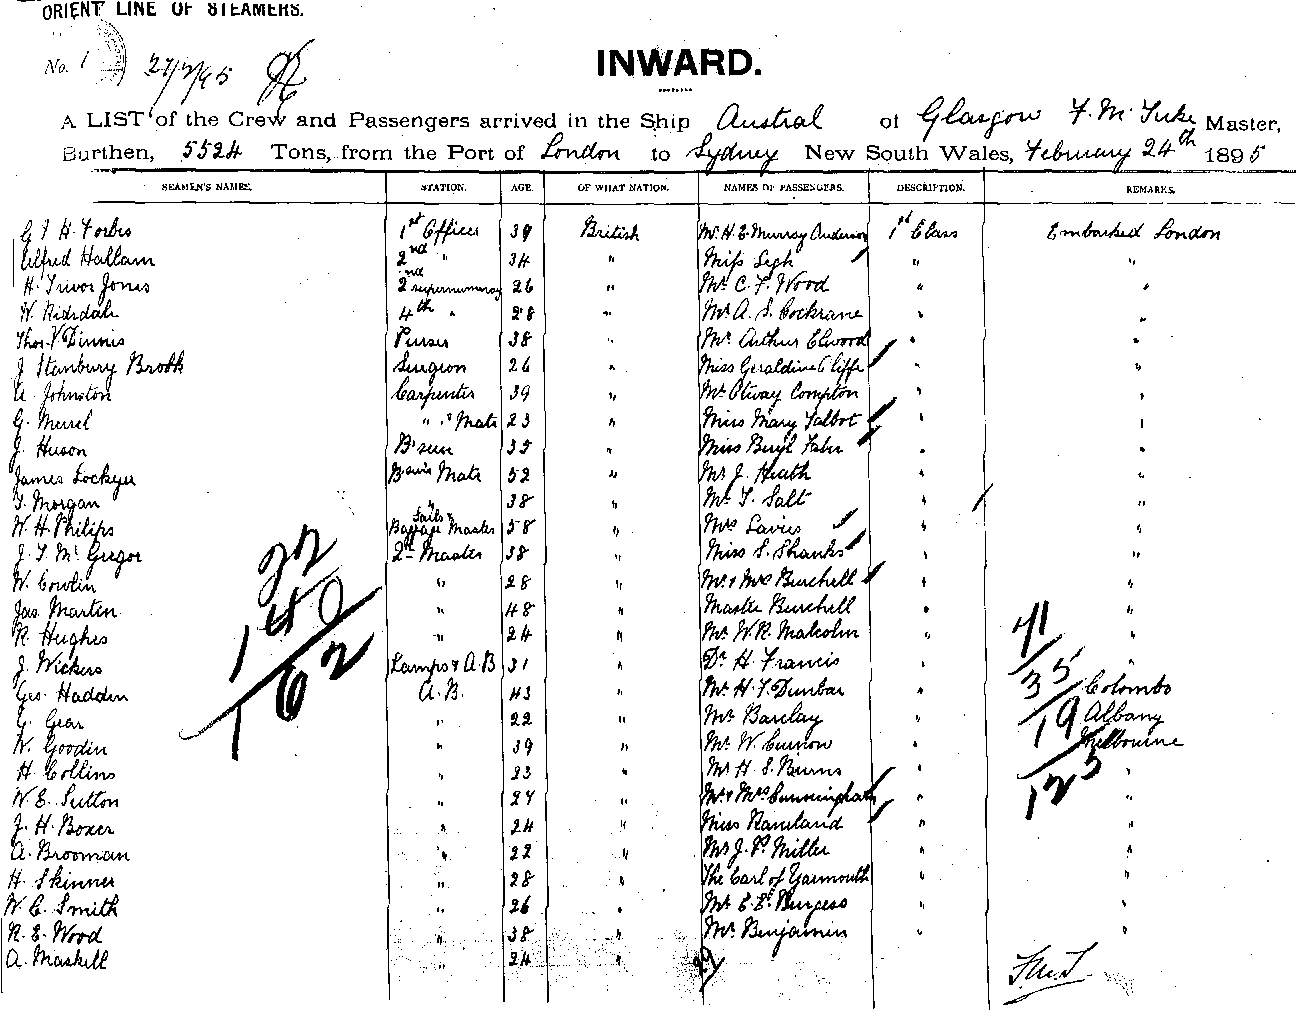 ORIENT LINE OF STEAMERS.
No. 1 27/2/95
INWARD.
A LIST of the Crew and Passengers arrived in the Ship Austral of Glasgow F. M. Tuke Master,
Burthen, 5524 Tons, from the Port of London to Sydney New South Wales, February 24th 1895
SEAMEN'S NAMES. STATION. AGE. OF WHAT NATION. NAMES OF PASSENGERS. DESCRIPTION. REMARKS.
G F H Forbes 1st Officer 39 British Mr H. E. Murray Anderson 1st Class Embarked London
Alfred Hallam 2nd " 34 " Miss Legh " "
H. Trevor Jones 2nd supernumerary 26 " Mr C. F. Wood " "
W. Ridsdale 4th " 28 " Mr A. S. Cockrane " "
Thos V Dinnis Purser 38 " Mr Arthur Elwood " "
J Stanbury Brook Surgeon 26 " Miss Geraldine Oliffe " "
A Johnston Carpenter 39 " Mr Otway Compton " "
G. Merrel " " Mate 23 " Miss Mary Talbot " "
J. Huson B'sun 35 " Miss Beryl Faber " "
James Lockyer B'sun's Mate 52 " Mr J. Heath " "
T. Morgan " 38 " Mr T. Salt " "
W. H. Philips Sails & Baggage Master 58 " Mrs Lavies " "
J. T. McGregor 2nd Master 38 " Miss S. Shanks " "
W. Cowlin " 28 " Mr & Mrs Burchell " "
Jas. Martin " 48 " Master Burchell " "
R. Hughes " 24 " Mr W. R. Malcolm " "
J. Wickers Lamps & A.B 31 " Dr H. Francis " "
Geo. Hadden A.B. 43 " Mr H. T. Dunbar " Colombo
G. Gear " 22 " Mr Barclay " Albany
W. Goodin " 39 " Mr W. Curnow " Melbourne
H Collins " 23 " Mr H. S. Burns " "
W. E. Sutton " 27 " Mr & Mrs Cunningham " "
J. H. Boxer " 24 " Miss Raneland " "
A. Brooman " 22 " Mr J. P. Miller " "
H. Skinner " 28 " The Earl of Yarmouth " "
W. C. Smith " 26 " Mr E. Burgess " "
R. E. Wood " 38 " Mr Benjamin " "
A. Maskell " 24 "
22
140
162
41
35
19
125
29
F.M.T